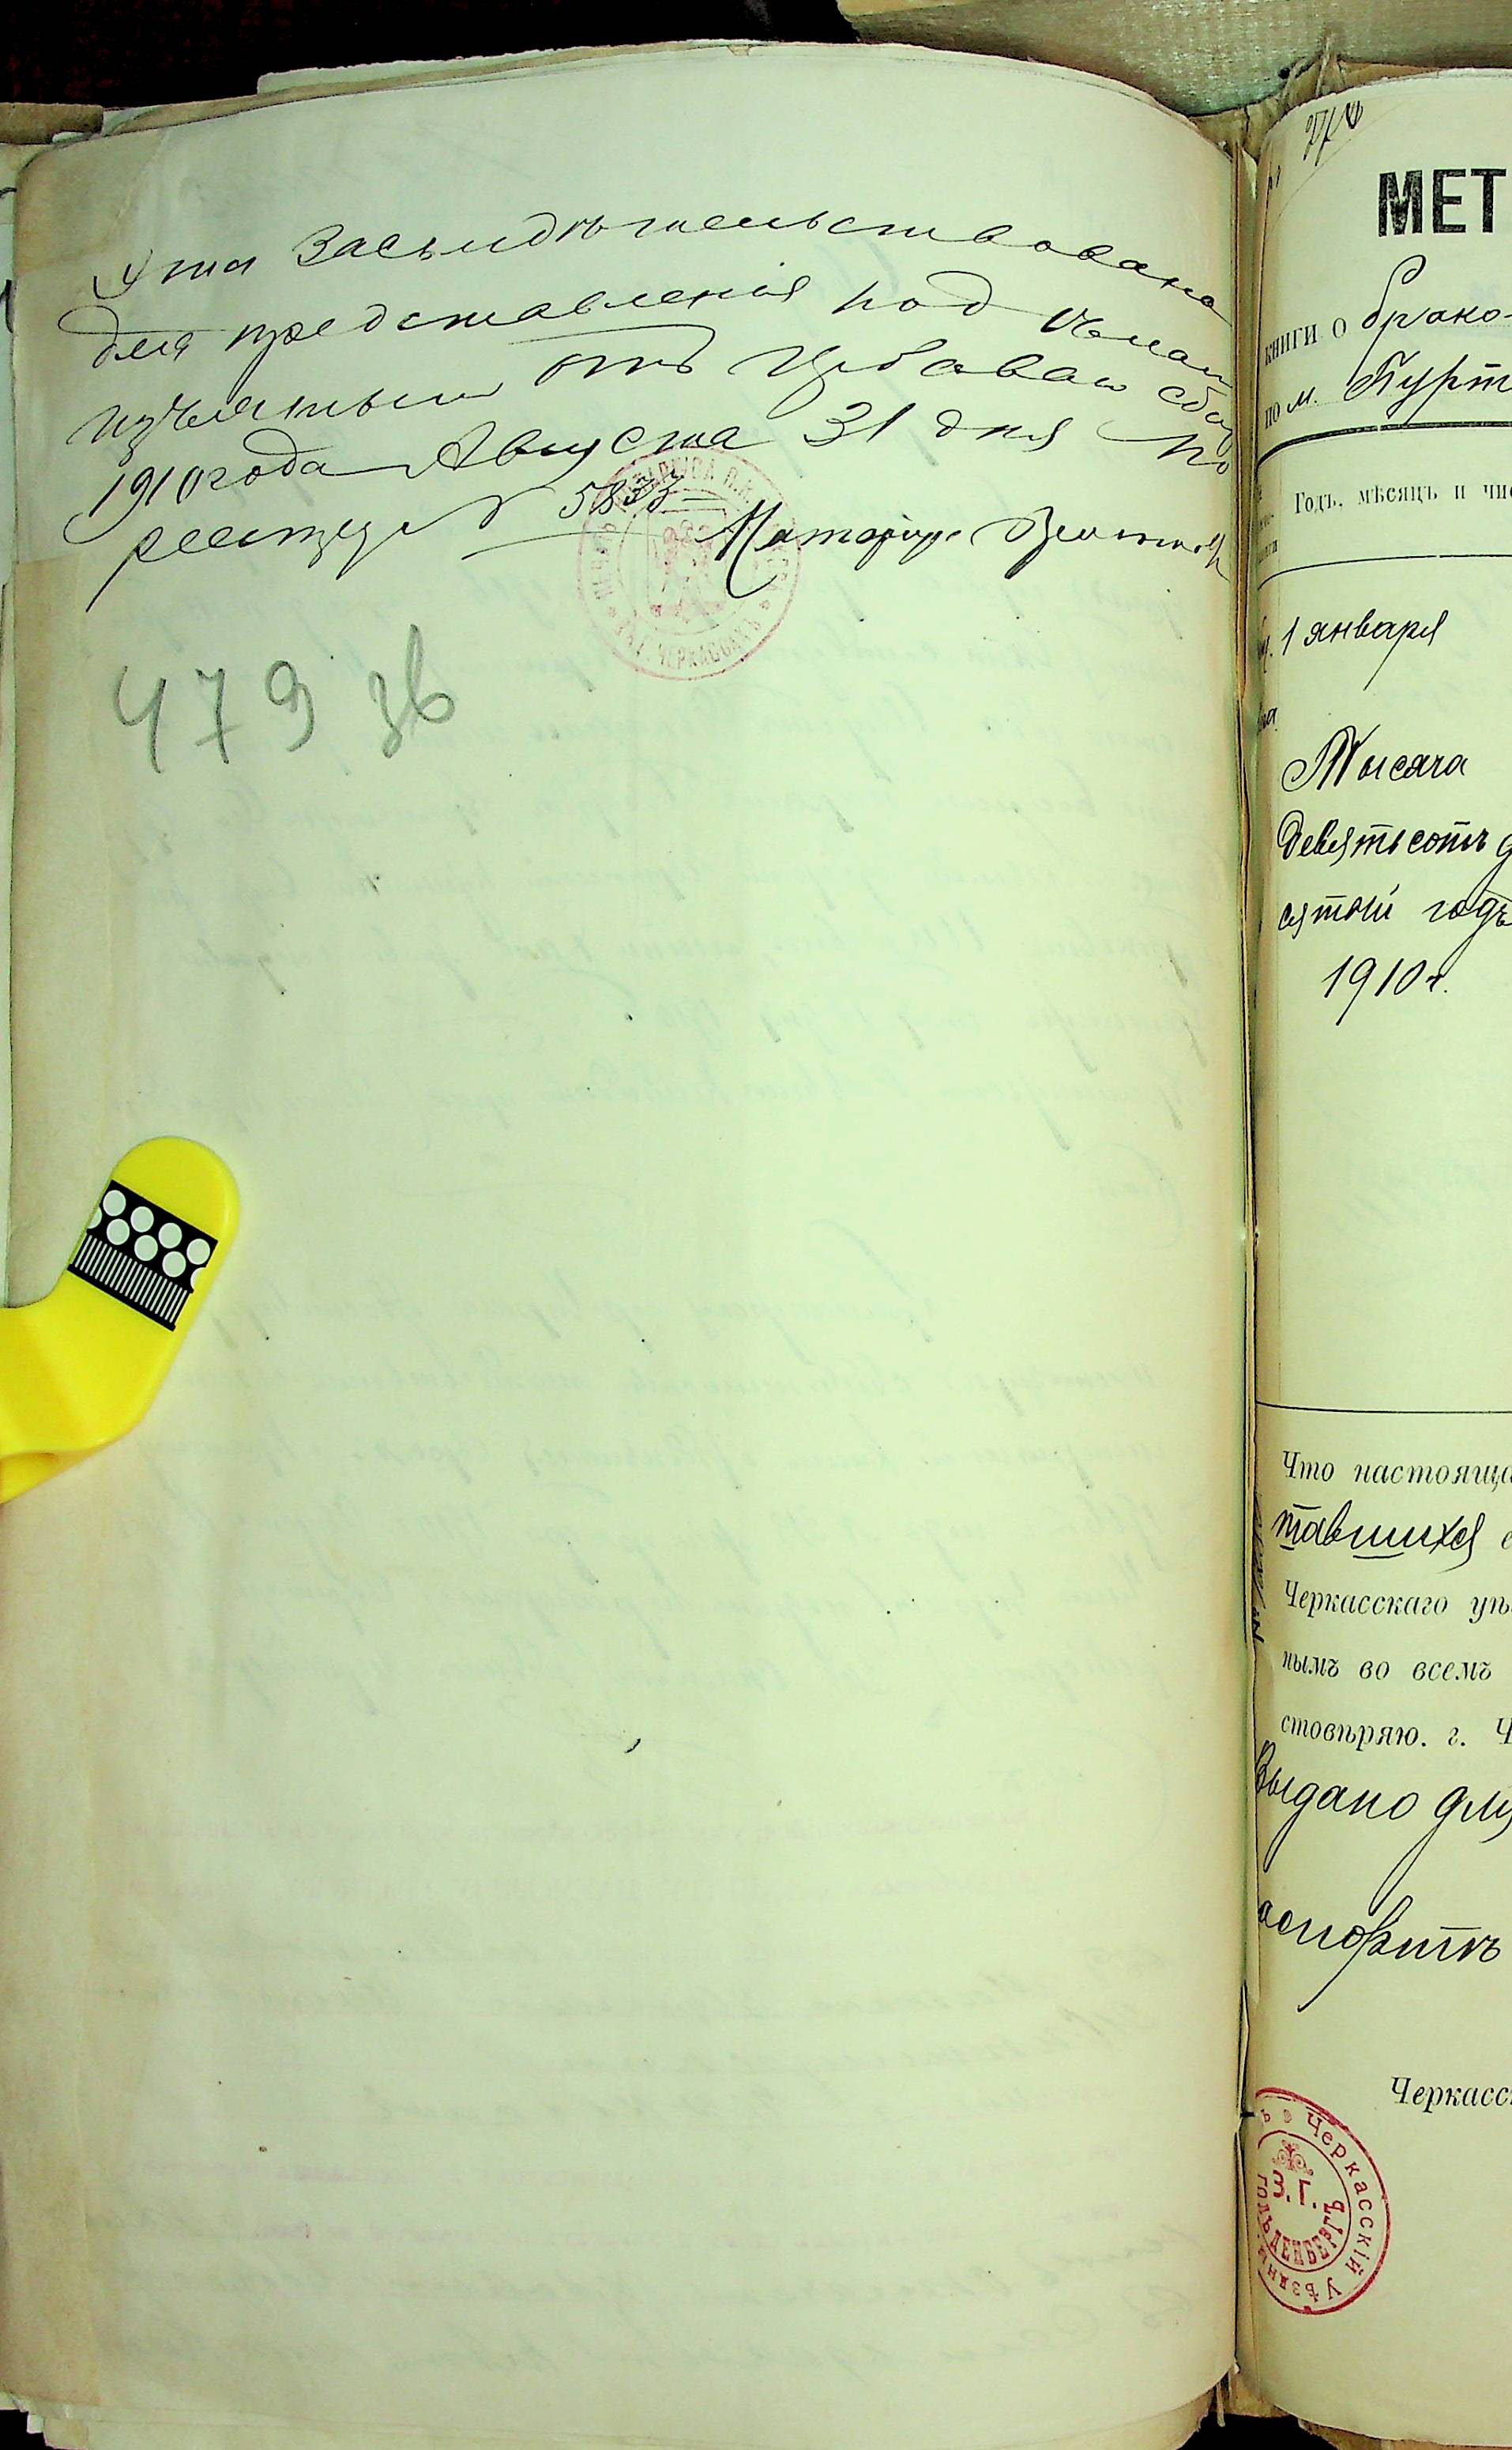 засвидѣтельствована
для представленія под
изъятным отъ гербаваго сбор
1910 года Августа 31 дня по
реестру № 5833
Нотаріусъ
Г. ЧЕРКАССАХЪ
479 зв
МЕТ
книги о брако-
по м.
Годъ, мѣсяцъ и чис
1 января
Тысяча
девятьсотъ д
сятый годъ
1910 г.
Что настояща
тавшихся
Черкасскаго уѣ
нымъ во всемъ
стовѣряю. г. Ч
Выдано для
Черкасс
Черкасскій Уѣздн
З. Г.
ГОЛЬДЕНБЕРГЪ